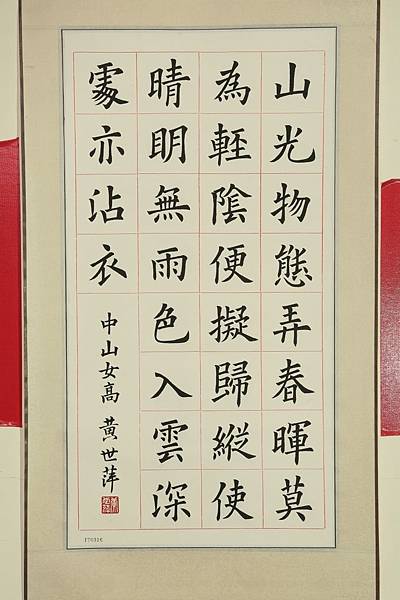 山光物態弄春暉莫
為輕陰便擬歸縱使
晴明無雨色入雲深
處亦沾衣
中山女高 黃世萍
170316